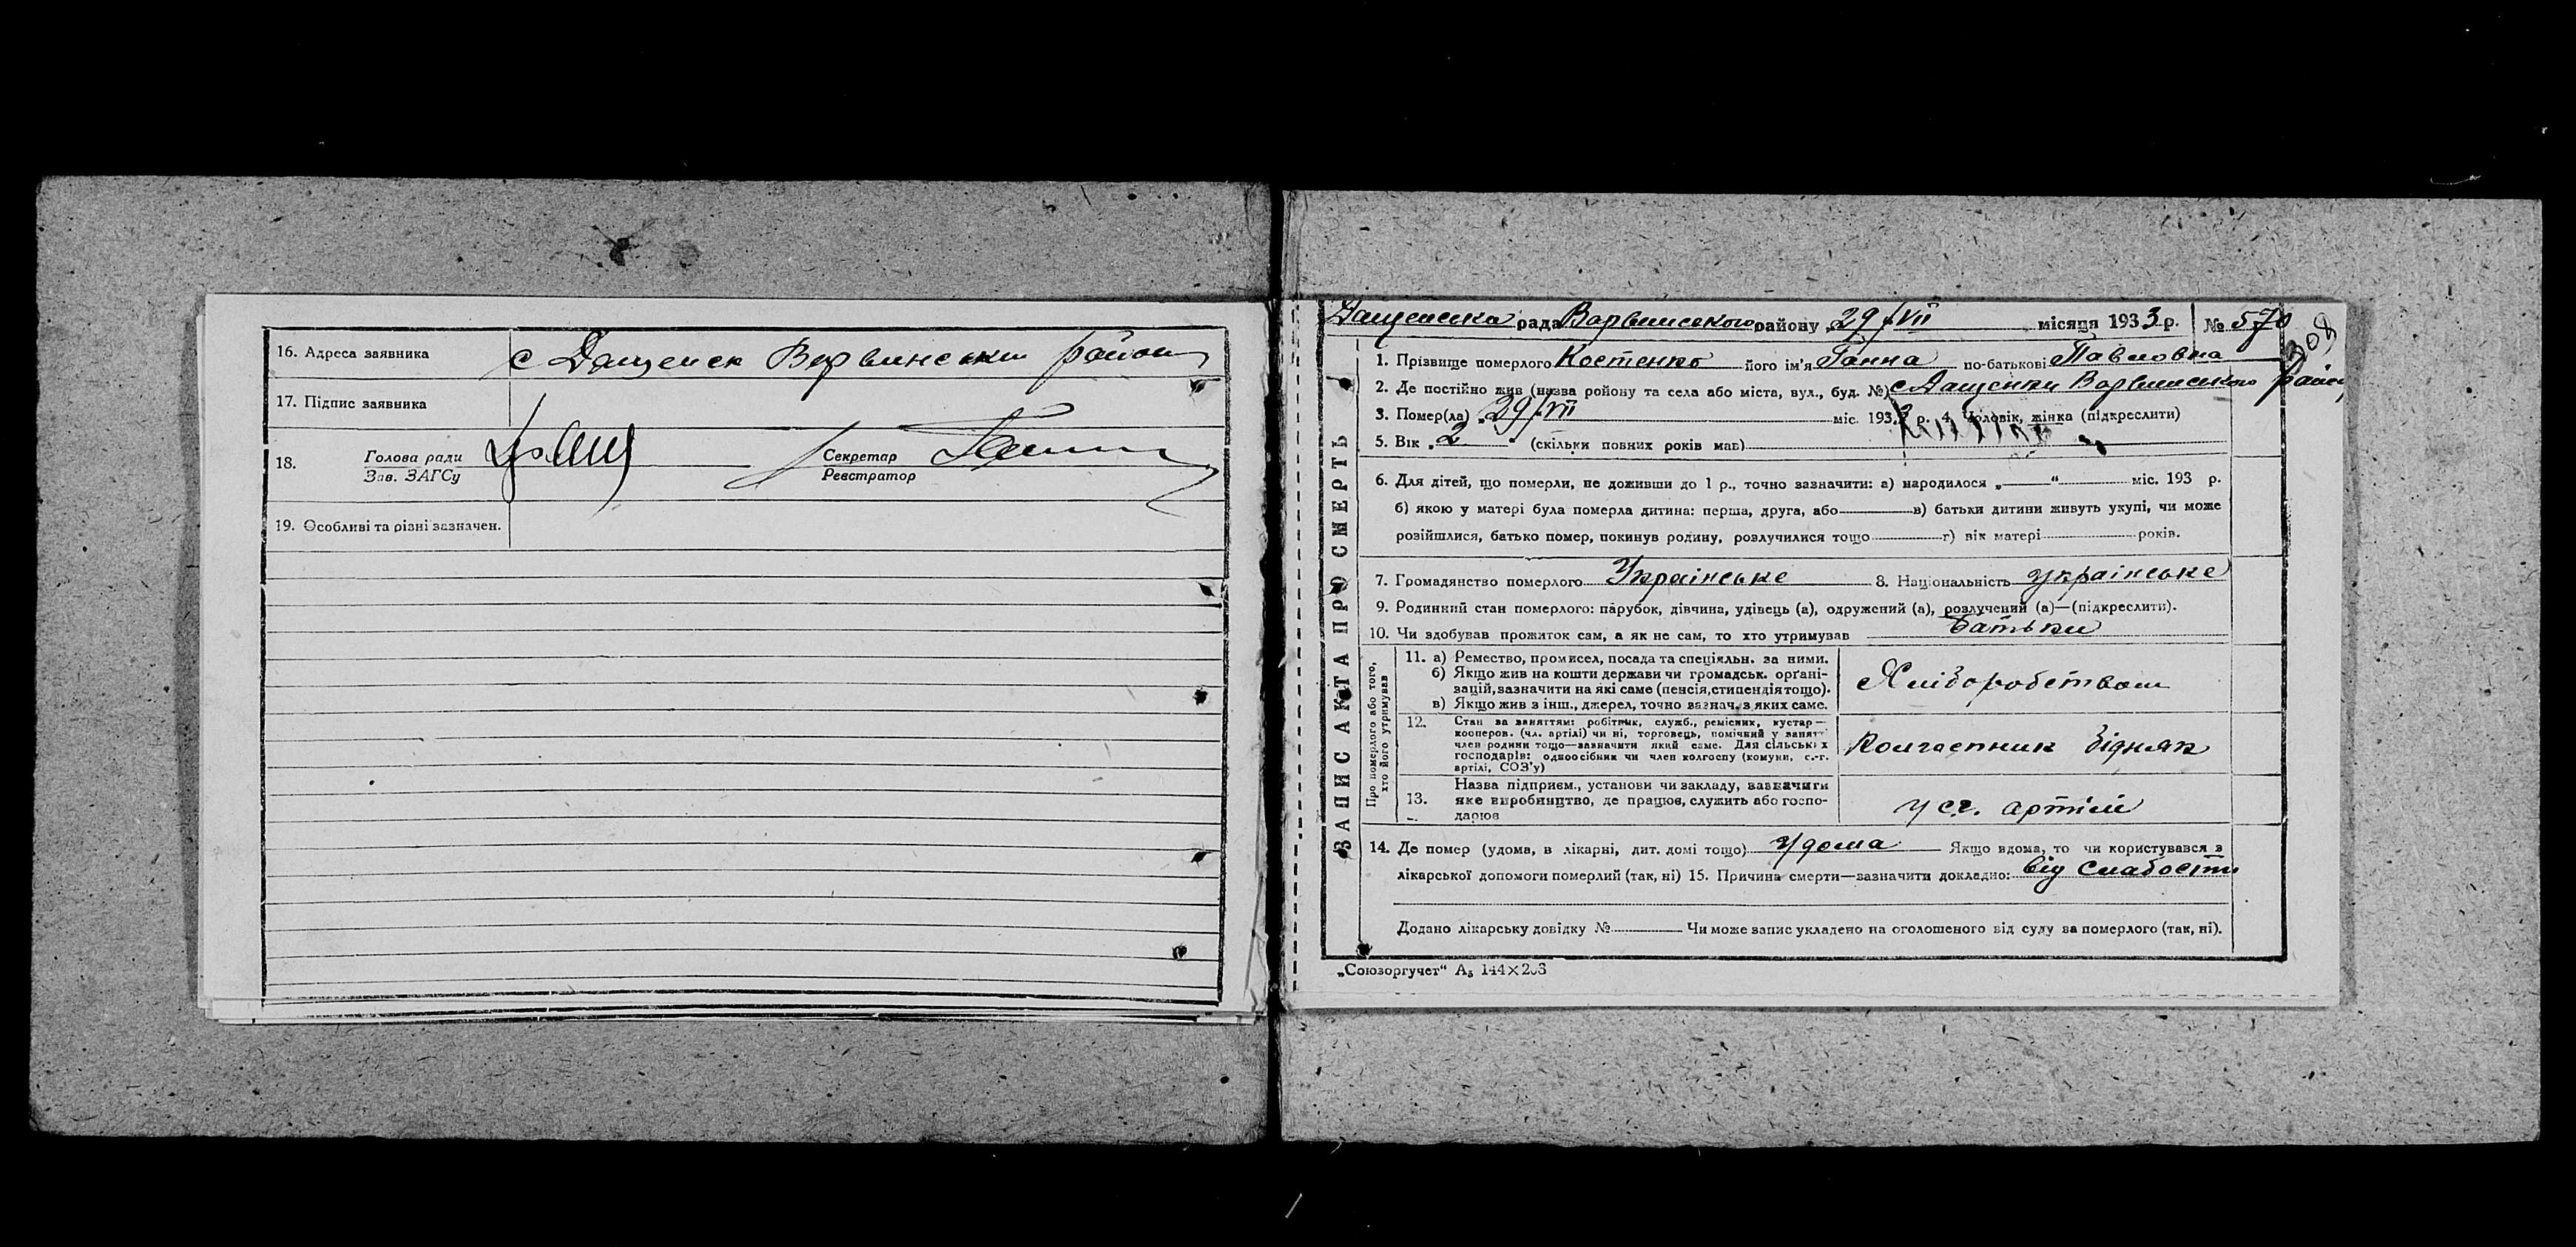 16. Адреса заявника с Дащенск Варвинський район
17. Підпис заявника
18. Голова ради Секретар
Зав. ЗАГСу Реєстратор
19. Особливі та різні зазначен.
Дащенська рада Варвинського району 29/VII місяця 1933 р. № 570
308
ЗАПИС АКТА ПРО СМЕРТЬ
1. Прізвище померлого Костенко його ім'я Ганна по-батькові Павловна
2. Де постійно жив (назва району та села або міста, вул., буд. №) с Дащенки Варвинського район
3. Помер(ла) „29/VII міс. 1933 р. 4. Чоловік, жінка (підкреслити)
5. Вік „2" (скільки повних років мав)
6. Для дітей, що померли, не доживши до 1 р., точно зазначити: а) народилося „ " міс. 193 р.
б) якою у матері була померла дитина: перша, друга, або в) батьки дитини живуть укупі, чи може
розійшлися, батько помер, покинув родину, розлучилися тощо г) вік матері років.
7. Громадянство померлого Українське 8. Національність українське
9. Родинний стан померлого: парубок, дівчина, удівець (а), одружений (а), розлучений (а)—(підкреслити).
10. Чи здобував прожиток сам, а як не сам, то хто утримував батьки
Про померлого або того, хто його утримував
11. а) Ремество, промисел, посада та спеціяльн. за ними.
б) Якщо жив на кошти держави чи громадськ. орґані-
зацій, зазначити на які саме (пенсія, стипендія тощо).
в) Якщо жив з інш., джерел, точно вазнач. з яких саме.
Хліборобством
12. Стан за заняттям: робітник, служб., ремісник, кустар—
кооперов. (чл. артілі) чи ні, торговець, помічний у занят
член родини тощо—зазначити який саме. Для сільських
господарів: одноосібник чи член колгоспу (комуни, с.-г.
артілі, СОЗ'у)
Колгоспник бідняк
13. Назва підприєм., установи чи закладу, зазначити
яке виробництво, де працює, служить або госпо-
дарює
у с.г. артілі
14. Де помер (удома, в лікарні, дит. домі тощо) Удома Якщо вдома, то чи користувався з
лікарської допомоги померлий (так, ні) 15. Причина смерти—зазначити докладно: від слабости
Додано лікарську довідку № Чи може запис укладено на оголошеного від суду за померлого (так, ні).
„Союзоргучет" А₅ 144×203